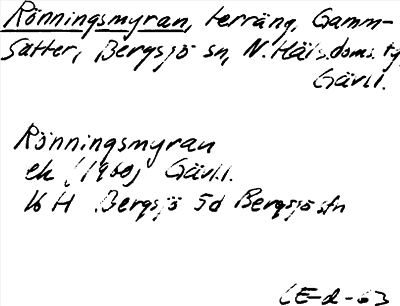 Rönningsmyran, terräng, Gamm-
sätter, Bergsjö sn, N. Häls. doms. tg,
Gävl.l.
Rönningsmyran
ek (1960) Gävl.l.
16 H Bergsjö 5d Bergsjö sfn
CE-d-63